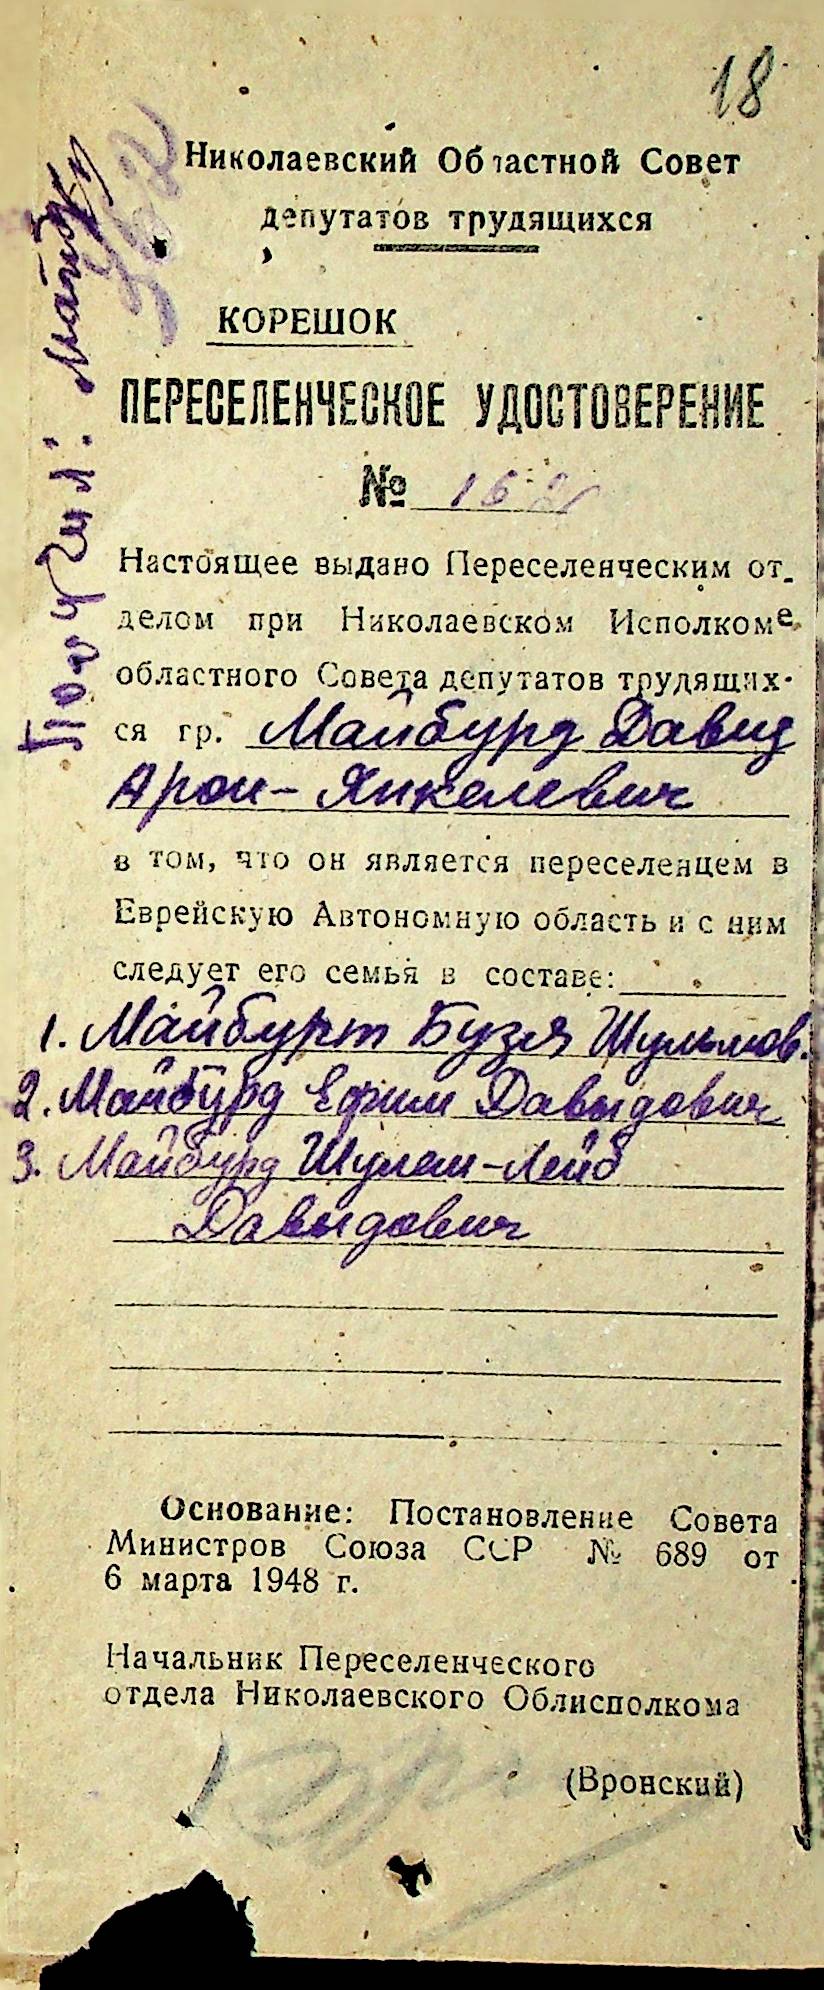 18
Николаевский Областной Совет
депутатов трудящихся
КОРЕШОК
ПЕРЕСЕЛЕНЧЕСКОЕ УДОСТОВЕРЕНИЕ
№ 162
Настоящее выдано Переселенческим от-
делом при Николаевском Исполкоме
областного Совета депутатов трудящих-
ся гр. Майбурд Давид
Арон-Янкелевич
в том, что он является переселенцем в
Еврейскую Автономную область и с ним
следует его семья в составе:
1. Майбурт Бузя Шульмов.
2. Майбурд Ефим Давыдович
3. Майбурд Шулем-Лейб
Давыдович
Основание: Постановление Совета
Министров Союза ССР № 689 от
6 марта 1948 г.
Начальник Переселенческого
отдела Николаевского Облисполкома
(Вронский)
Получил: